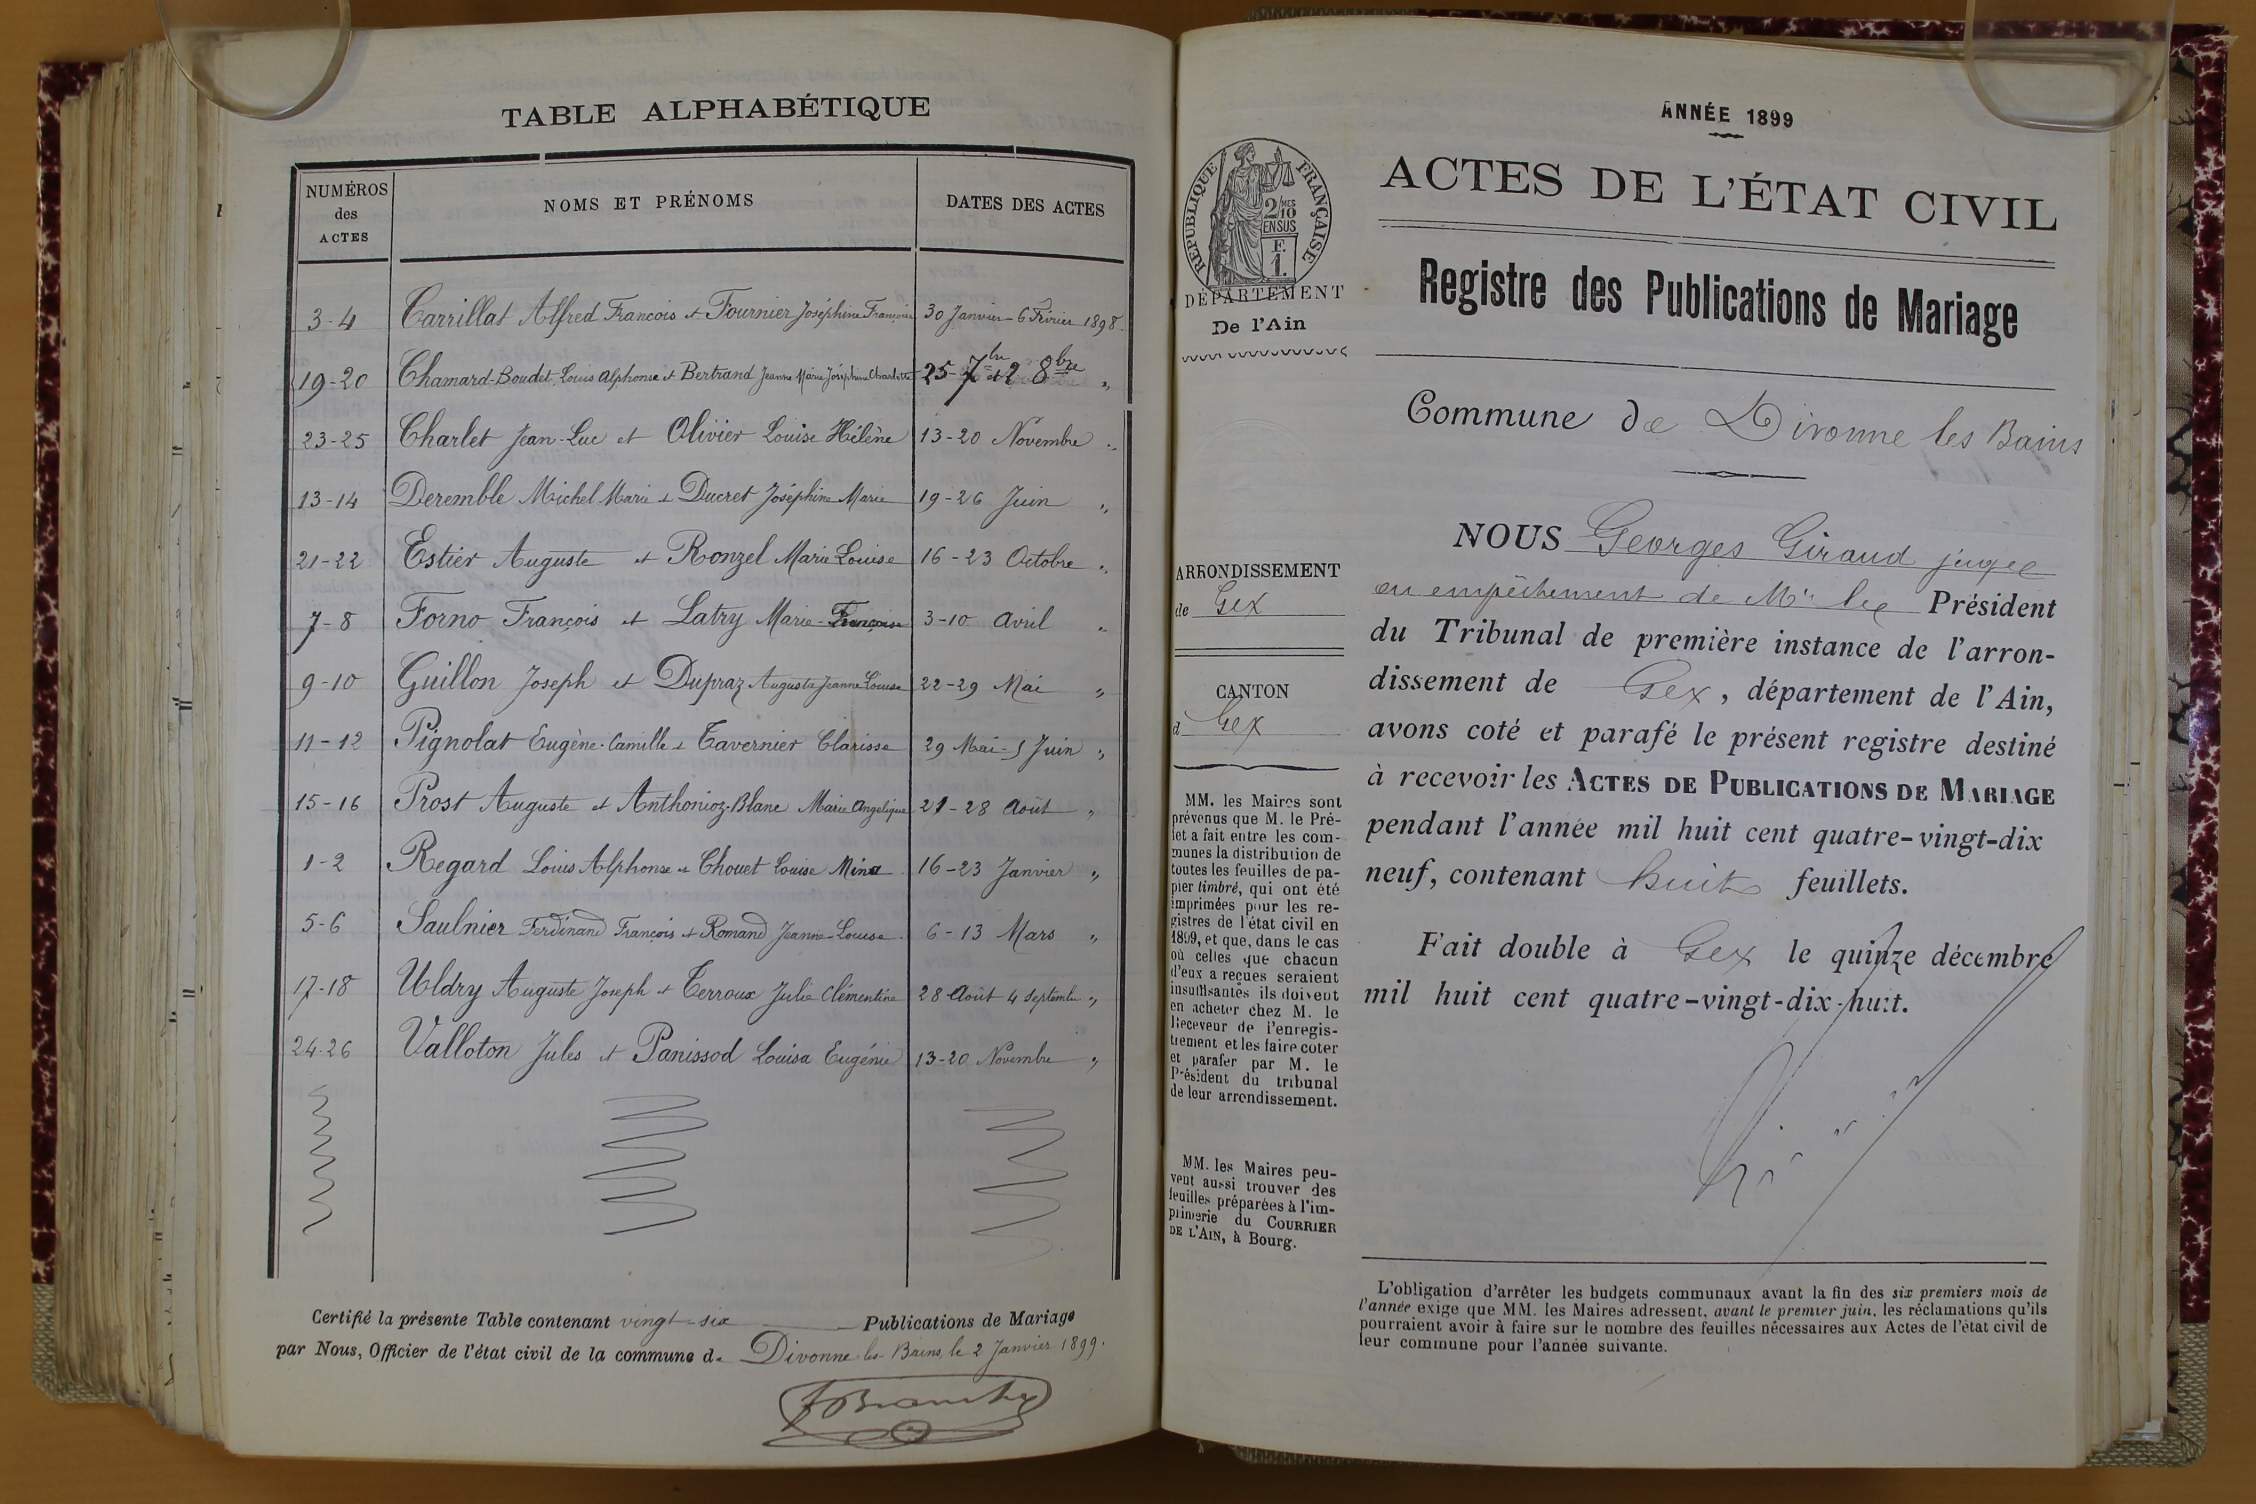 TABLE ALPHABÉTIQUE
NUMÉROS des ACTES
NOMS ET PRÉNOMS
DATES DES ACTES
3-4 Carrillat Alfred François et Fournier Joséphine Françoise 30 Janvier - 6 Février 1898.
19-20 Chamard-Boudet Louis Alphonse et Bertrand Jeanne Marie Joséphine Charlotte 25 7bre et 2 8bre "
23-25 Charlet Jean-Luc et Olivier Louise Hélène 13-20 Novembre "
13-14 Deremble Michel Marie et Ducret Joséphine Marie 19-26 Juin "
21-22 Estier Auguste et Ronzel Marie Louise 16-23 Octobre "
7-8 Forno François et Latry Marie-Françoise 3-10 Avril "
9-10 Guillon Joseph et Dupraz Augusta Jeanne Louise 22-29 Mai "
11-12 Pignolat Eugène-Camille et Tavernier Clarisse 29 Mai-5 Juin "
15-16 Prost Auguste et Anthonioz-Blanc Marie Angelique 21-28 Août "
1-2 Regard Louis Alphonse et Chouet Louise Mina 16-23 Janvier "
5-6 Saulnier Ferdinand François et Romand Jeanne-Louise 6-13 Mars "
17-18 Uldry Auguste Joseph et Terroux Julie Clémentine 28 Août 4 Septembre "
24-26 Valloton Jules et Panissod Louisa Eugénie 13-20 Novembre "
Certifié la présente Table contenant vingt-six Publications de Mariage
par Nous, Officier de l'état civil de la commune de Divonne les Bains, le 2 Janvier 1899.
RÉPUBLIQUE FRANÇAISE
2/10 MES
EN SUS
F.
1.
DÉPARTEMENT
De l'Ain
ARRONDISSEMENT
de Gex
CANTON
d Gex
MM. les Maires sont
prévenus que M. le Pré-
fet a fait entre les com-
munes la distribution de
toutes les feuilles de pa-
pier timbré, qui ont été
imprimées pour les re-
gistres de l'état civil en
1899, et que, dans le cas
où celles que chacun
d'eux a reçues seraient
insuffisantes ils doivent
en acheter chez M. le
Receveur de l'enregis-
trement et les faire coter
et parafer par M. le
Président du tribunal
de leur arrondissement.
MM. les Maires peu-
vent aussi trouver des
feuilles préparées à l'im-
primerie du COURRIER
DE L'AIN, à Bourg.
ANNÉE 1899
ACTES DE L'ÉTAT CIVIL
Registre des Publications de Mariage
Commune de Divonne les Bains
NOUS Georges Giraud juge
en empêchement de Mr le Président
du Tribunal de première instance de l'arron-
dissement de Gex, département de l'Ain,
avons coté et parafé le présent registre destiné
à recevoir les ACTES DE PUBLICATIONS DE MARIAGE
pendant l'année mil huit cent quatre-vingt-dix
neuf, contenant huit feuillets.
Fait double à Gex le quinze décembre
mil huit cent quatre-vingt-dix-huit.
L'obligation d'arrêter les budgets communaux avant la fin des six premiers mois de
l'année exige que MM. les Maires adressent, avant le premier juin, les réclamations qu'ils
pourraient avoir à faire sur le nombre des feuilles nécessaires aux Actes de l'état civil de
leur commune pour l'année suivante.